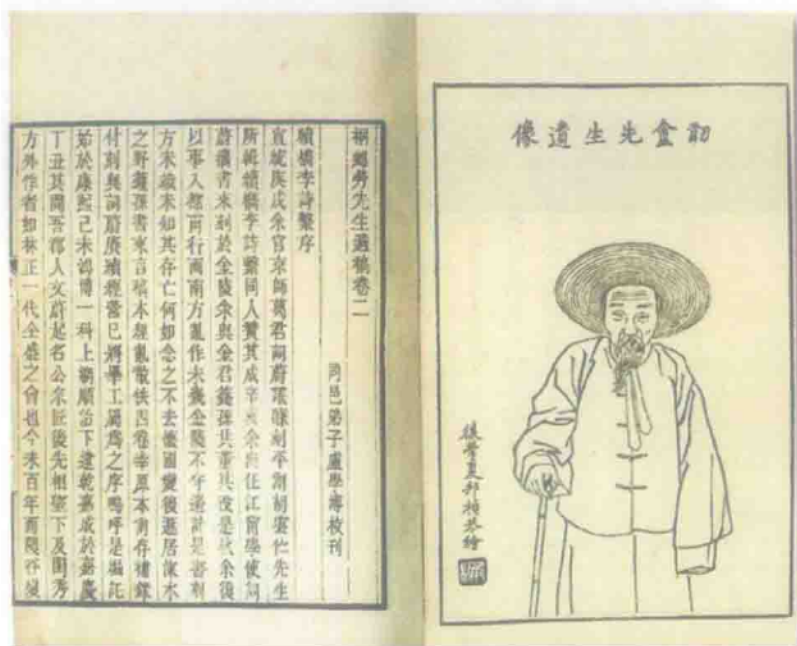 韌盦先生遺像
後學夏邦楨恭繪
桐鄉勞先生遺稿卷二
同邑弟子盧學溥校刊
續檇李詩繫序
宣統庚戌余官京師葛君詞蔚謀刻平湖胡先生
所輯續檇李詩繫同人贊其成辛亥余出任江寧學使詞
蔚攜書來刻於金陵余與金君籛孫共董其役是秋余復
以事入都而行而南方亂作未幾金陵不守是書刻
方未竣未知其存亡何如念之不去懷國變後遯居淶水
之野籛孫書來言稿本經亂散佚四卷幸原本尚存補錄
付刻與詞蔚賡續經營已將畢工屬為之序嗚呼是編託
始於康熙己未鴻博一科上溯順治下逮乾嘉成於嘉慶
丁丑其間吾郡人文蔚起名公宗匠後先相望下及閨秀
方外作者如林正一代全盛之會也今未百年而陵谷變